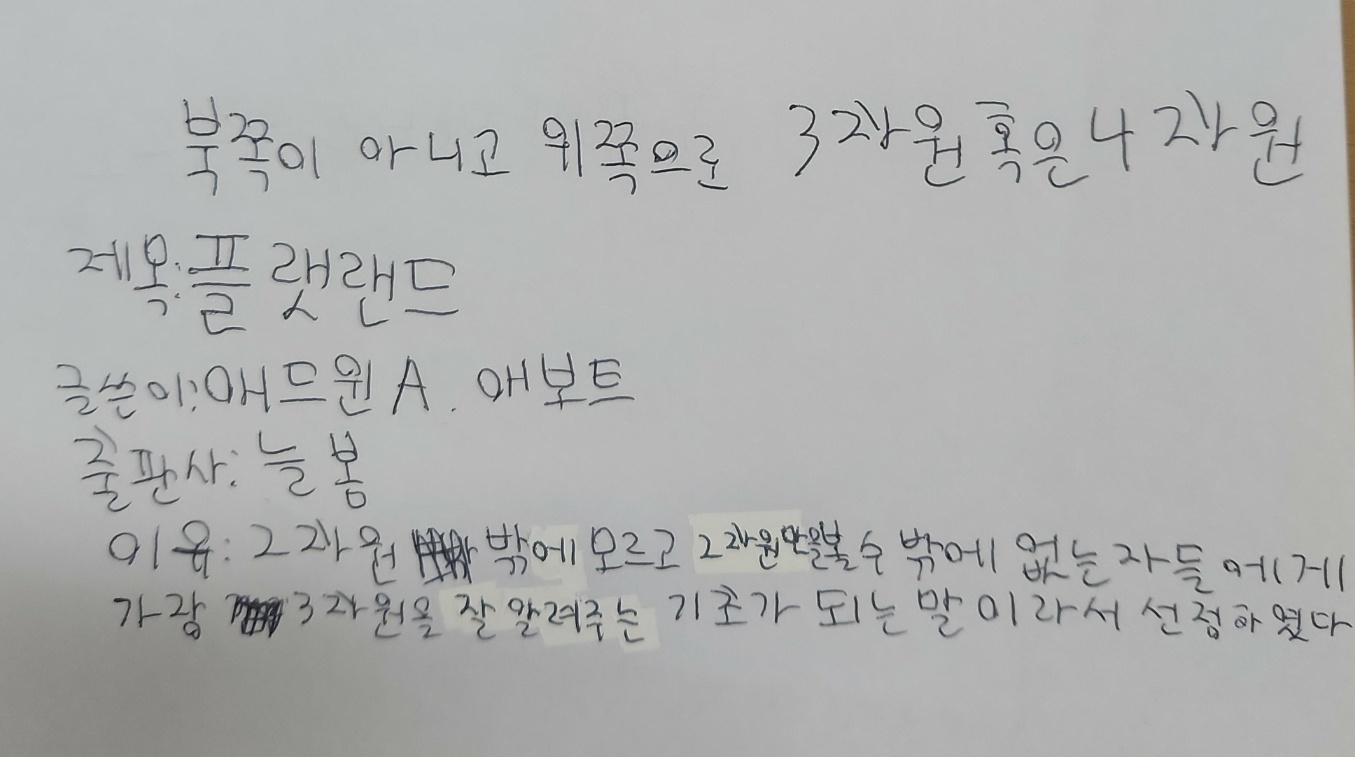 북쪽이 아니고 위쪽으로 3차원 혹은 4차원
제목: 플랫랜드
글쓴이: 애드윈 A. 애보트
출판사: 늘봄
이유: 2차원 밖에 모르고 2차원만을볼 수 밖에 없는 자들에게
가장 3차원을 잘 알려주는 기초가 되는 말이라서 선정하였다